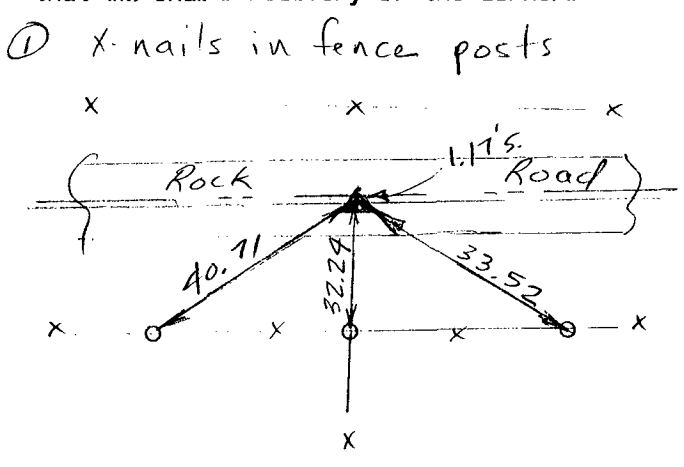 ① X-nails in fence posts
X X X
Rock Road
40.71
32.24
33.52
X X X X
X